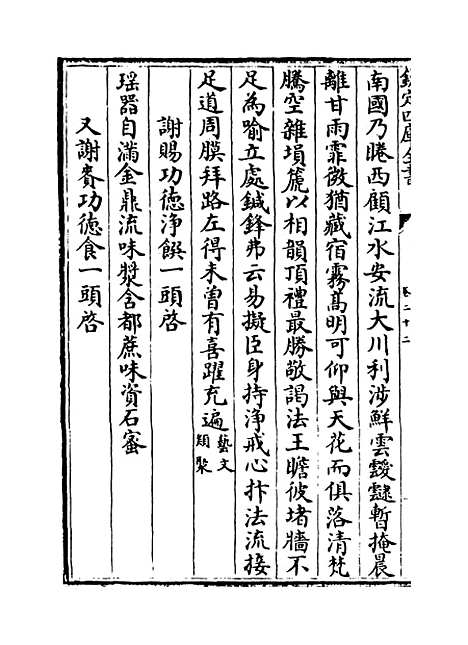 欽定四庫全書
卷二十二
南國乃睠西顧江水安流大川利涉鮮雲靉靆暫掩晨
離甘雨霏微猶藏宿霧髙明可仰與天花而俱落清梵
騰空雜塤箎以相韻頂禮最勝敬謁法王瞻彼堵牆不
足為喻立處鍼鋒弗云易擬臣身持浄戒心抃法流接
足道周膜拜路左得未曾有喜躍充遍藝文
類聚
謝賜功德浄饌一頭啓
瑶器自滿金鼎流味漿含都蔗味資石蜜
又謝賚功德食一頭啓